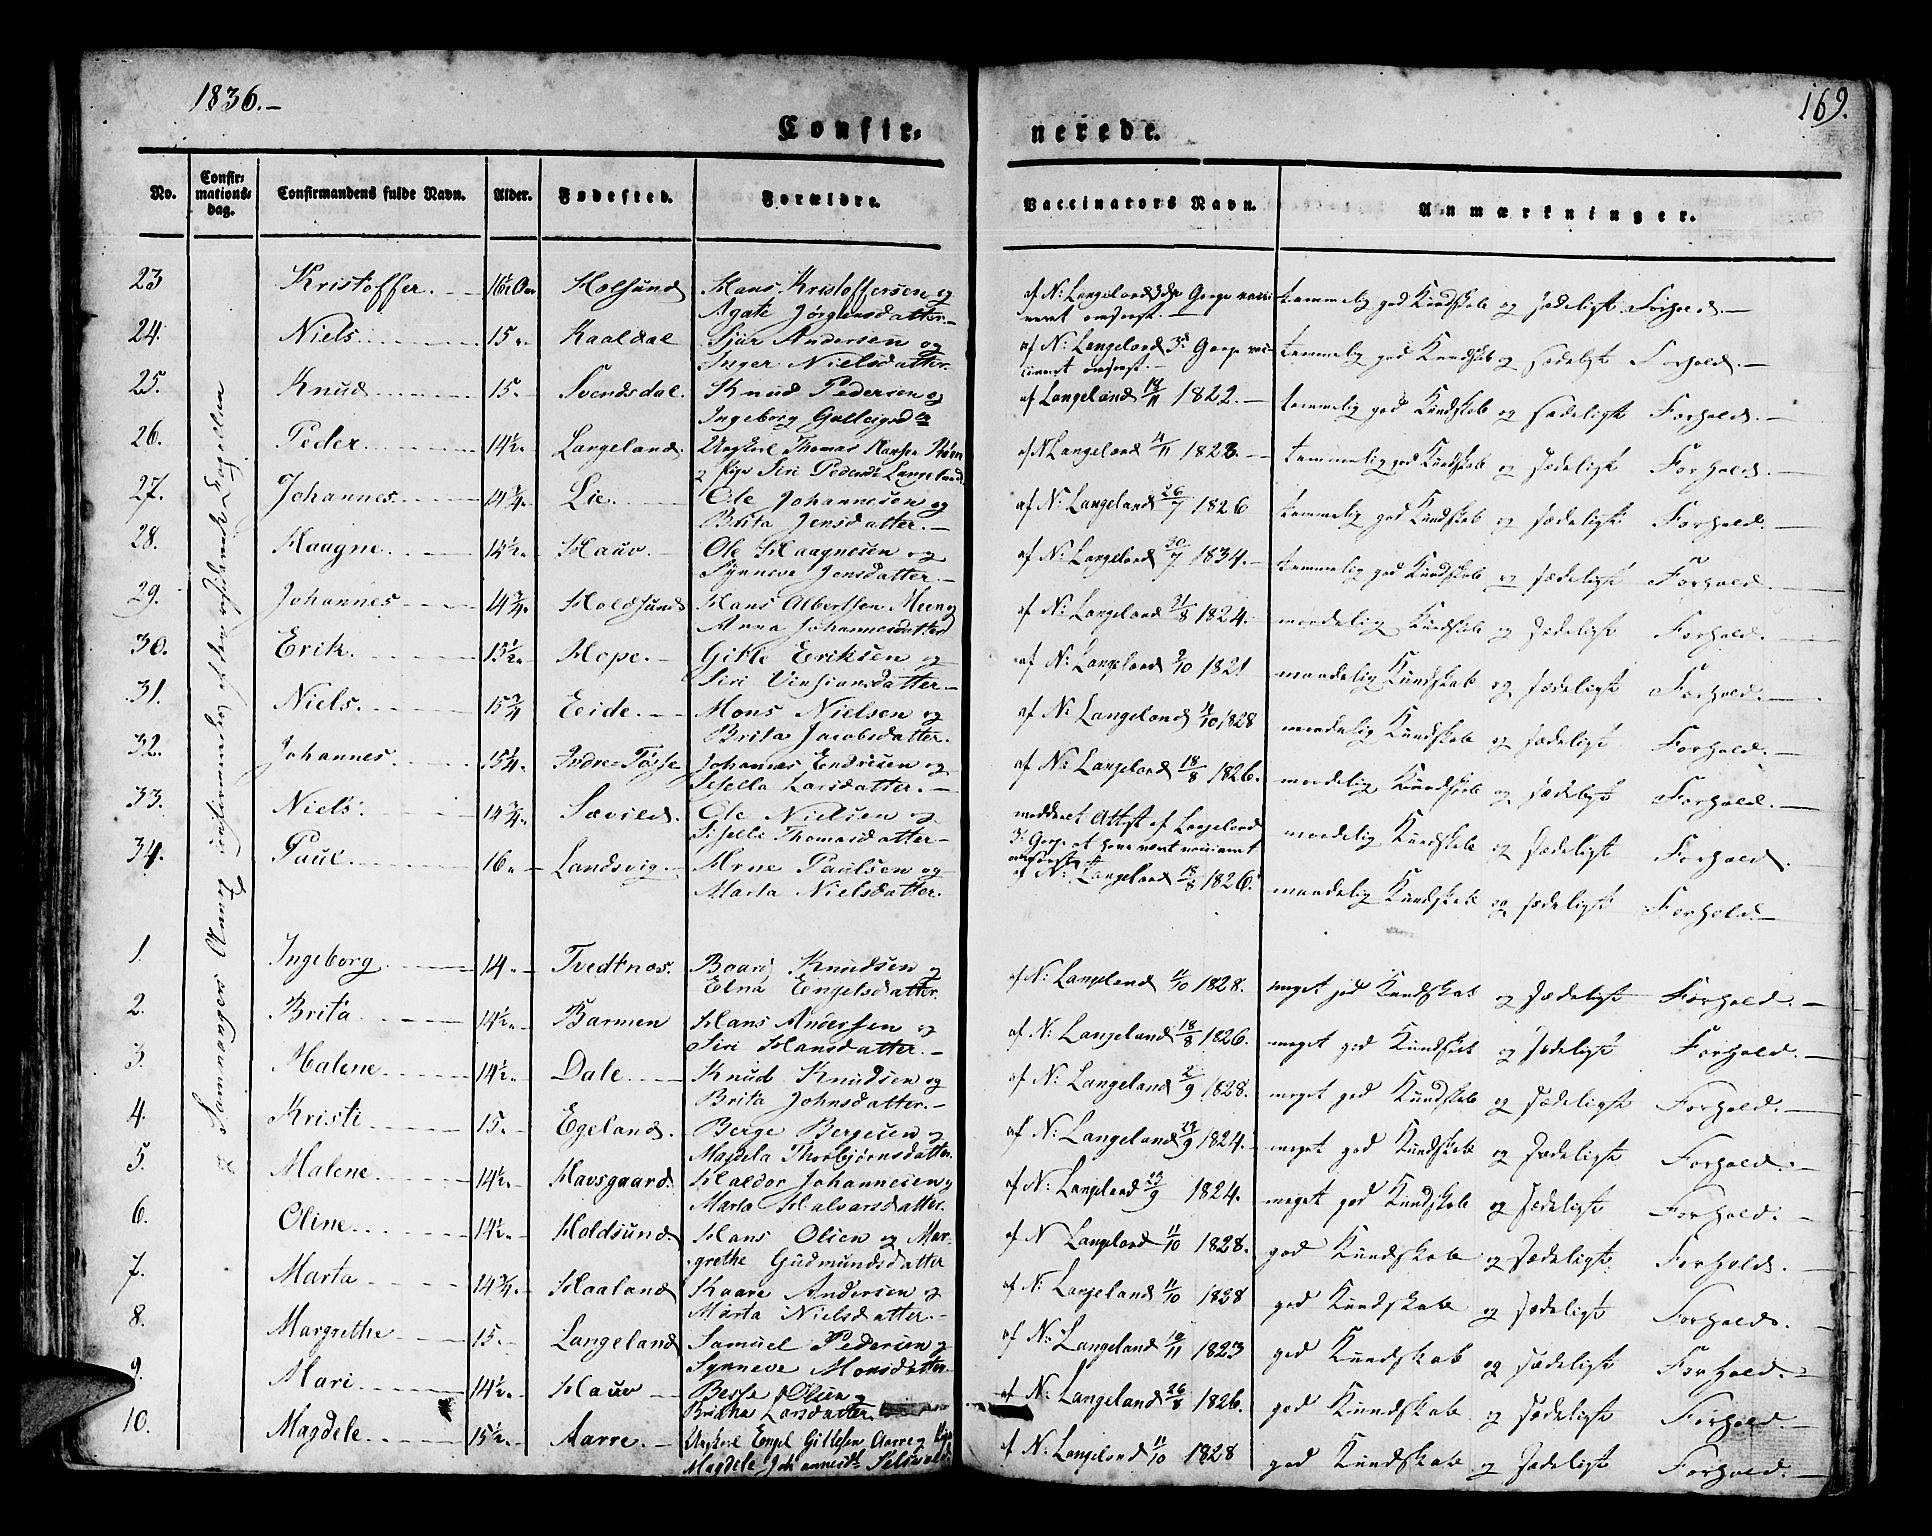 1836.–
169.
Confir-
nerede.
No.
Confir-
mations-
dag.
Confirmandens fulde Navn.
Alder.
Fødested.
Forældre.
Vaccinators Navn.
Anmærkninger.
23 Kristoffer. Holsund Hans Kristoffersen og temmelig god Kundskab og sædeligt Forhold.
Agate Jørgensdatter.
24. Niels 15 Kaaldal Sjur Andersen og temmelig god Kundskab og sædeligt Forhold.
Inger Nielsdatter.
25. Knud 15 Svendsdal. Knud Pedersen og af Langeland 1822. temmelig god Kundskab og sædeligt Forhold.
Ingeborg
26. Peder 14½ Langeland. Ungkarl Thomas Hansen af N Langeland 4/11 1823. temmelig god Kundskab og sædeligt Forhold.
og Pige Siri Pedersd Langeland
27. Johannes 14¾ Lie. Ole Johannesen og af N: Langeland 26/7 1826 temmelig god Kundskab og sædeligt Forhold.
Brita Jensdatter.
28. Haagne 14½ Hauv. Ole Haagnesen og af N: Langeland 30/7 1834. temmelig god Kundskab og sædeligt Forhold.
Synneve Jensdatter.
29. Johannes 14¾ Holdsund Hans Albertsen Meen og af N: Langeland 31/8 1824. maadelig Kundskab og sædeligt Forhold.
Anna Johannesdatter
30. Erik. 15½ Hope. Gitle Eriksen og af N: Langeland 9/10 1821 maadelig Kundskab og sædeligt Forhold.
Siri Vinsiansdatter
31. Niels. 15¾ Eide. Mons Nielsen og af N: Langeland 4/10 1828 maadelig Kundskab og sædeligt Forhold.
Brita Jacobsdatter.
32. Johannes. 15¼ Indre-Tøsse Johannes Endresen og af N: Langeland 18/8 1826. maadelig Kundskab og sædeligt Forhold.
Sesella Larsdatter.
33. Niels 14¾ Sævild. Ole Nielsen og meddeelt Attest af Langeland maadelig Kundskab og sædeligt Forhold.
Siselle Thomasdatter
34. Paul 16 Landsvig. Arne Paulsen og af N: Langeland 18/8 1826. maadelig Kundskab og sædeligt Forhold.
Marta Nielsdatter.
1. Ingeborg 14 Tvedtnæs. Baard Knudsen og af N: Langeland 11/10 1828. meget god Kundskab og sædeligt Forhold.
Elna Engelsdatter.
2. Brita 14½ Barmen Hans Andersen og af N: Langeland 18/8 1826. meget god Kundskab og sædeligt Forhold.
Siri Hansdatter.
3. Malene 14½ Dale Knud Knudsen og af N: Langeland 2/9 1828. meget god Kundskab og sædeligt Forhold.
Brita Johnsdatter.
4. Kristi 15. Egeland. Berge Bergesen og af N: Langeland 29/9 1824. meget god Kundskab og sædeligt Forhold.
Magdela Thorbjørnsdatter.
5. Malene 14½ Havsgaard. Haldor Johannesen og af N: Langeland 29/9 1824. meget god Kundskab og sædeligt Forhold.
Marta Halvarsdatter.
6. Oline 14½ Holdsund Hans Olsen og Mar- af N Langeland 11/10 1828. god Kundskab og sædeligt Forhold.
grethe Gudmundsdatter
7. Marta 14¾ Haaland Kaare Andersen og af N: Langeland 11/10 1828 god Kundskab og sædeligt Forhold.
Marta Nielsdatter.
8. Margrethe 15. Langeland Samuel Pedersen og af N: Langeland 10/11 1823 god Kundskab og sædeligt Forhold.
Synneve Monsdatter
9. Mari 14½ Hauv Olsen og af N: Langeland 26/8 1826. god Kundskab og sædeligt Forhold.
Larsdatter.
10. Magdele 15½ Aarre. Ungkarl Engel Gitlesen Aarre og Pige af N: Langeland 11/10 1828 god Kundskab og sædeligt Forhold.
Magdele Johannesd